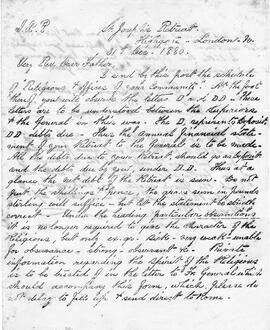 J. X. P.
St. Joseph's Retreat
Highgate - London. N.
31st Dec. 1880.
Very Rev. Dear Father,
I send by this post the schedule
of "Religious & Offices of your Community". At the foot
you will observe the letters D. & DD. - These
letters are to be understood between the Superiors
& the General in this way: - the D. represents
DD - debts due. - Thus the annual financial state-
ment of your Retreat to the General is to be made.
All the debts due to your Retreat should go as
and the debts due by you, under D.D. Thus at a
glance the debt of the Retreat is seen. Do not
put the shillings & pence, the gross sum in pounds
sterling will suffice - but let the statement be strictly
correct. - Under the heading particular observations
it is no longer required to give the character of the
Religious, but only ex. gr. Sick - very weak - unable
for observance - strong - observant &c. Private
information regarding the spirit of the Religious
is to be treated of in the letter to Fr. General which
should accompany this form, which, please do
not delay to fill up & send direct to Rome.